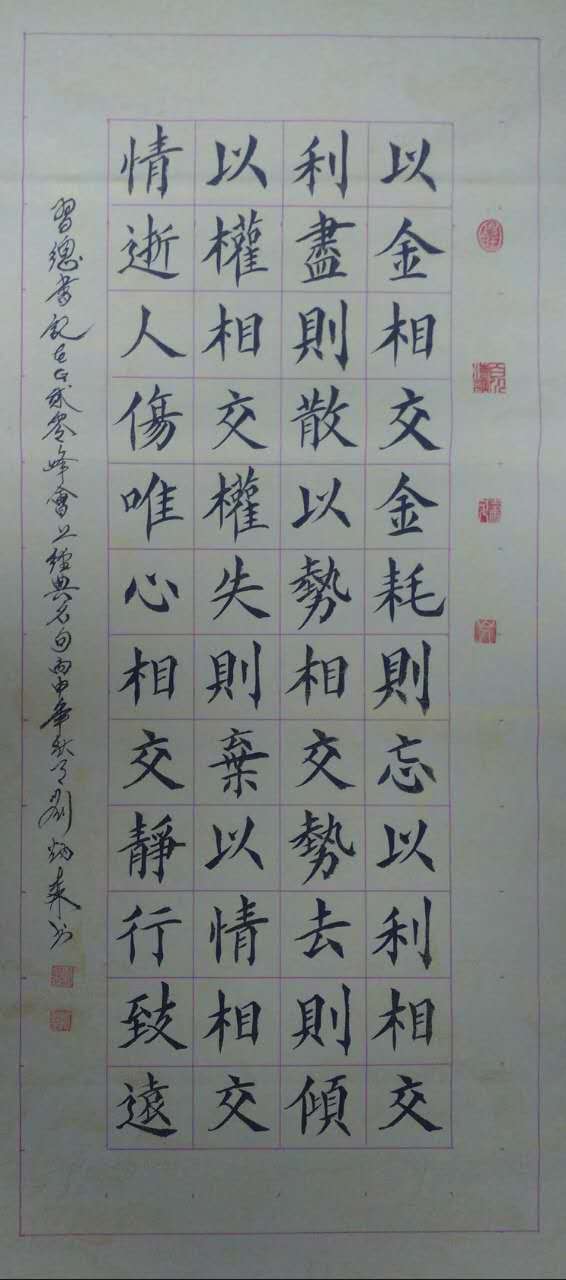 以金相交金耗則忘以利相交
利盡則散以勢相交勢去則傾
以權相交權失則棄以情相交
情逝人傷唯心相交靜行致遠
習總書記在G貳零峰會上經典名句丙申年秋月劉炳來書